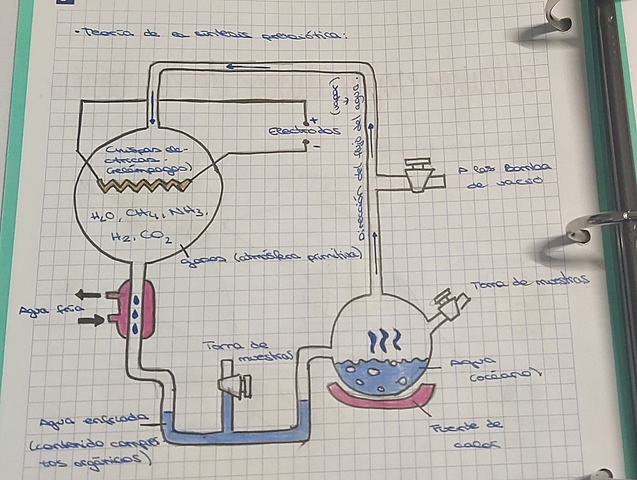 · Teoría de la síntesis prebiótica:
Chispas elé-
ctricas.
(relámpagos)
+
Electrodos
-
H2O, CH4, NH3,
H2, CO2
gases (atmósfera primitiva)
Dirección del flujo del agua.
(vapor)
A la Bomba
de vacío
Toma de muestras
Agua fría
Toma de
muestras
Agua
(océano)
Agua enfriada
(contenido compues
tos orgánicos)
Fuente de
calor